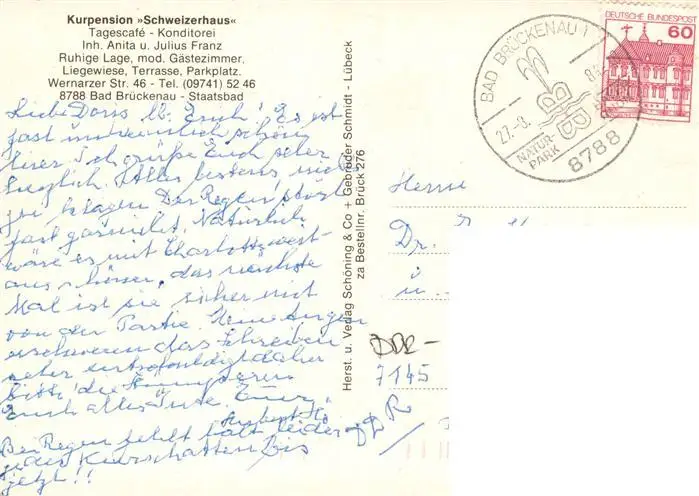 Kurpension »Schweizerhaus«
Tagescafé - Konditorei
Inh. Anita u. Julius Franz
Ruhige Lage, mod. Gästezimmer,
Liegewiese, Terrasse, Parkplatz.
Wernarzer Str. 46 - Tel. (09741) 52 46
8788 Bad Brückenau - Staatsbad
Liebe Doris, lb. Erich! Es ist
fast unheimlich schön
hier. Ich grüße Euch sehr
herzlich. Alles bestens, nicht
zu klagen. Der Regen
fast Natürlich
wäre es mit Charlotte weit-
aus schöner, das nächste
Mal ist sie sicher mit
von der Partie. Meine Augen
erschweren das Schreiben
sehr entschuldigt daher
bitte die
Euch alles Gute. Euer
Hubert
Bei Regen fehlt halt leider
jeder Kurschatten bis
jetzt!!
Herst. u. Verlag Schöning & Co + Gebrüder Schmidt - Lübeck
za Bestellnr. Brück 276
DEUTSCHE BUNDESPOST
60
BAD BRÜCKENAU 1
27.-8.
NATUR-
PARK
8788
Herrn
Dr.
u.
DDR-
7145
DDR